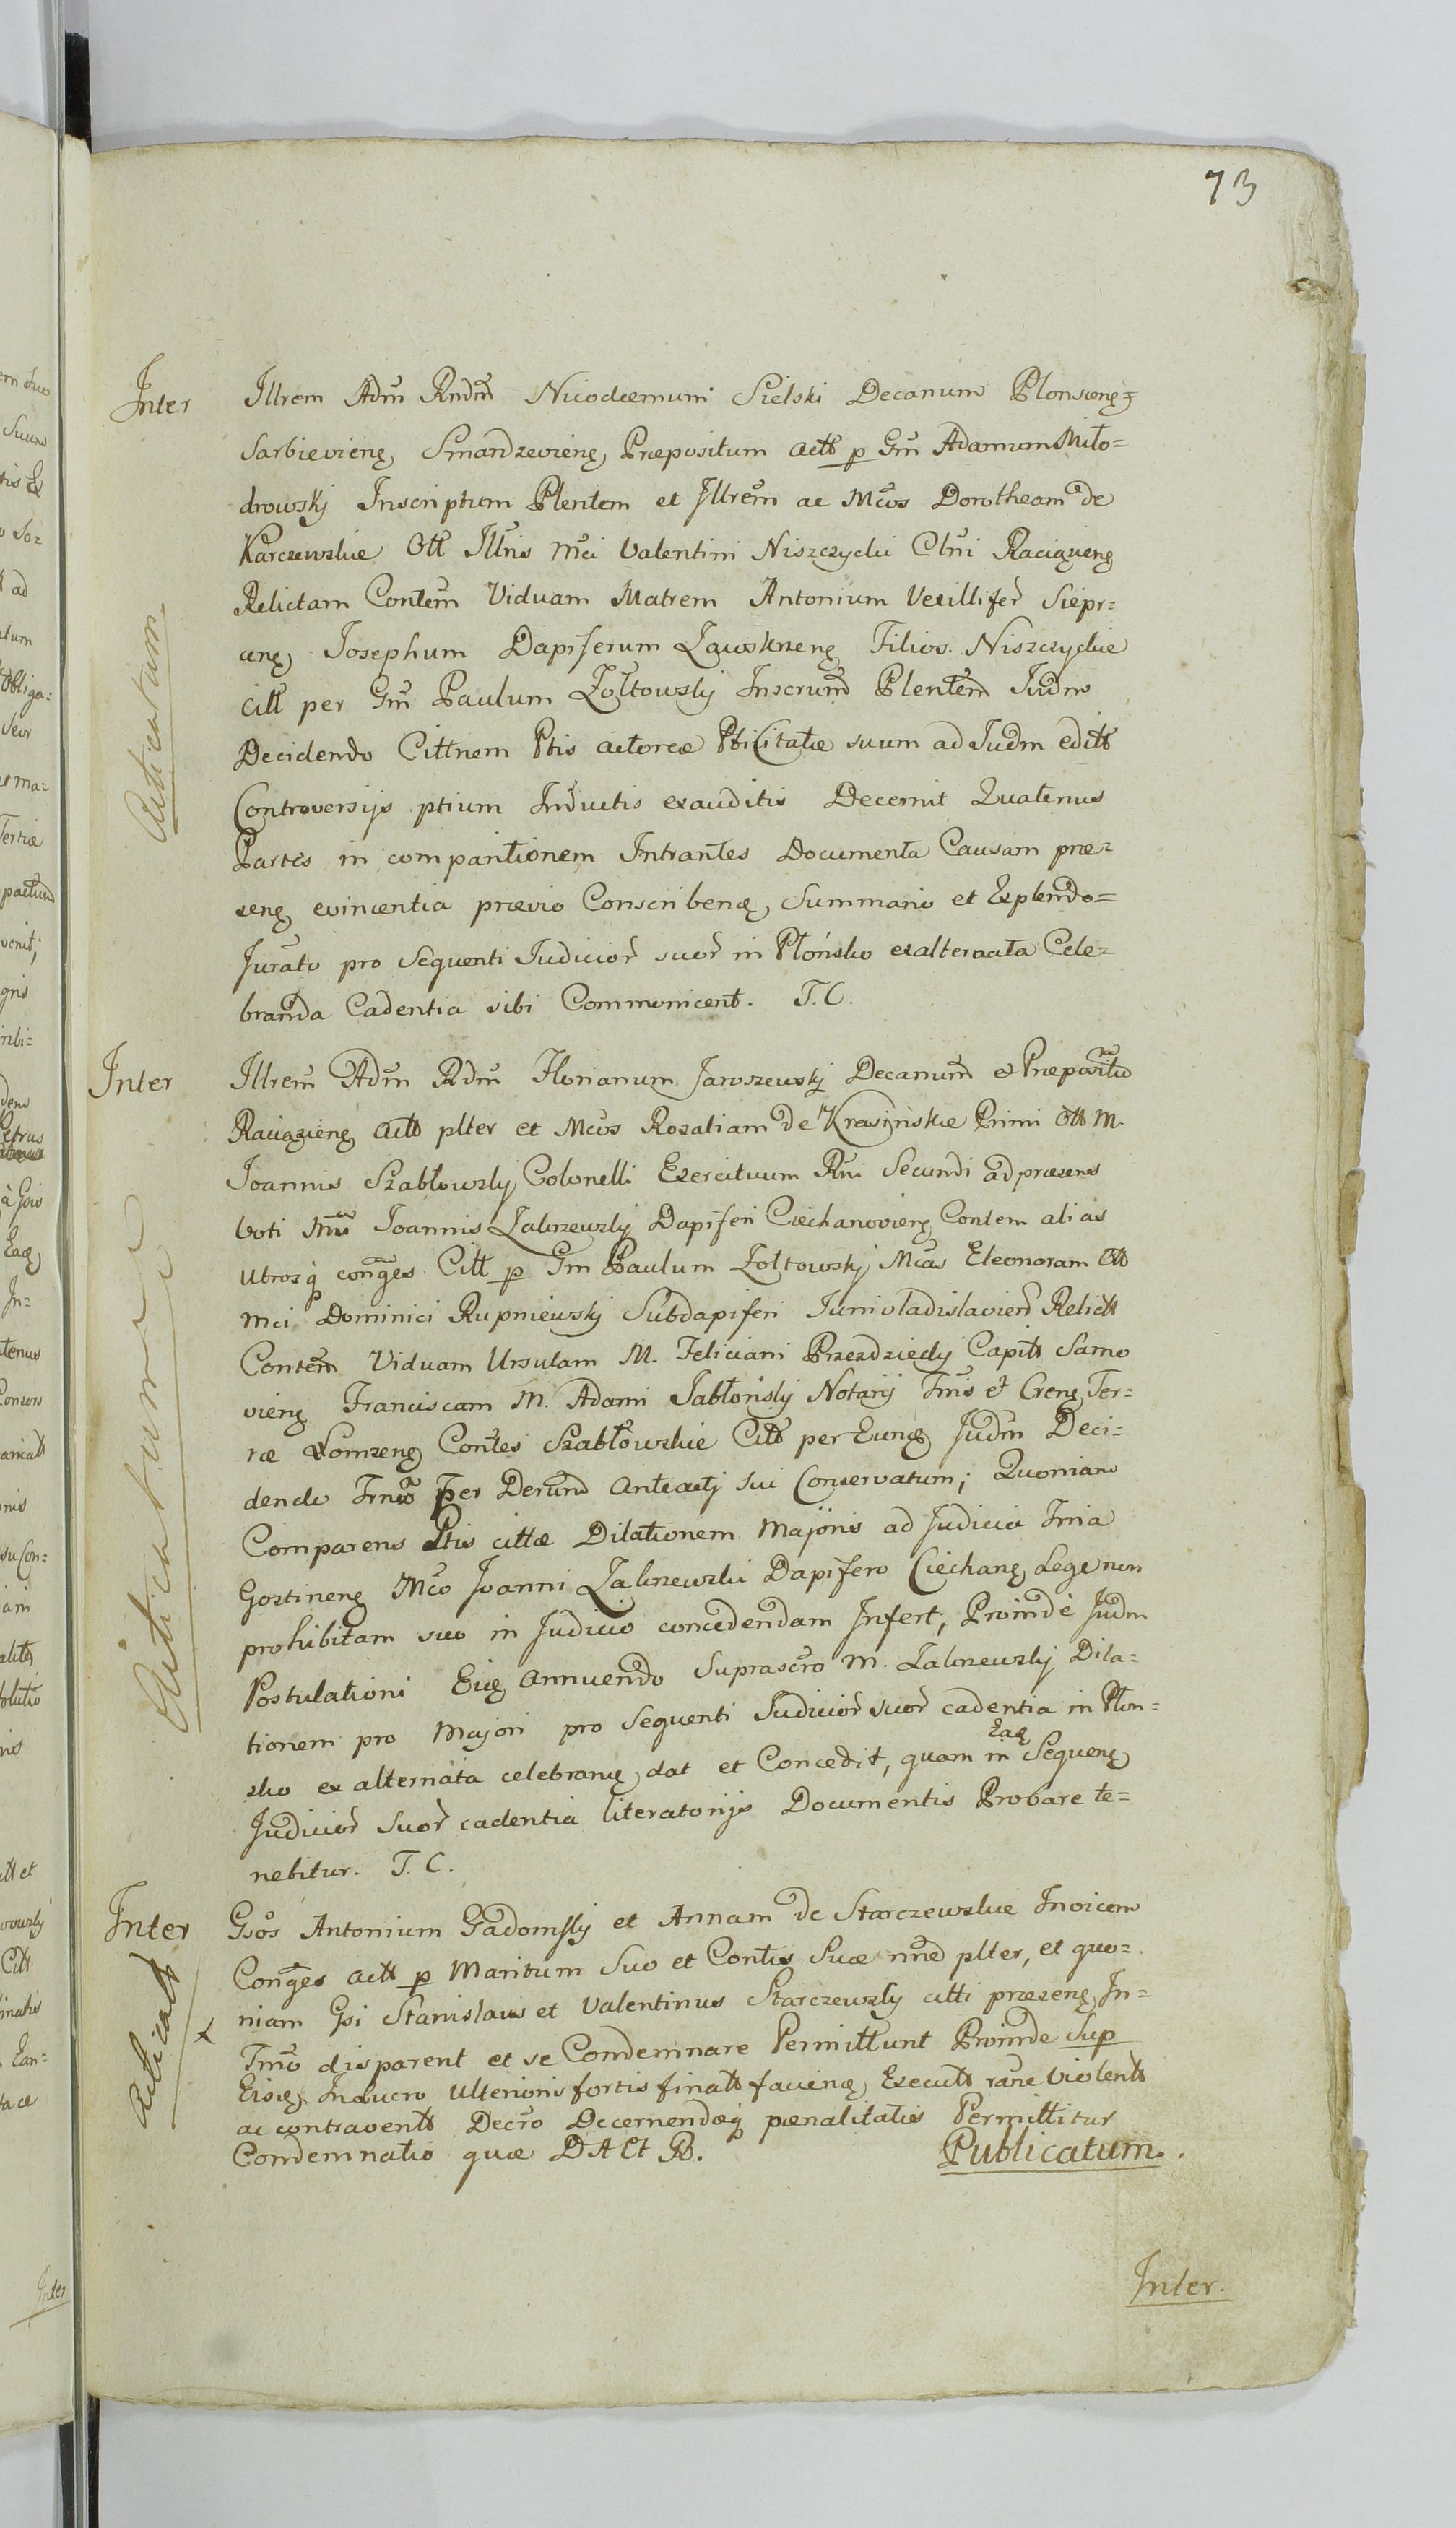 73
Inter Illrem Adm Rndm Nicodæmum Sielski Decanum Plonscenq
Sarbieviens, Smardzeviens, Præpositum Actt p Gm Adamum Miło=
drowskj Inscriptum Plentem et Illrem ac Mcos Dorotheam de
Karczewskie Ott Illris Mci Valentini Niszczycki Clni Raciąuens
Relictam Contem Viduam Matrem Antonium Vexillifer Siepr=
cens, Josephum Dapiferum Zawskrens Filios. Niszczyckie
citt per Gm Paulum Zołtowskj Inscrum Plentem Judm
Decidendo Cittnem Ptis actoreæ Pti Citatæ suum ad Judm editt
Controversijs ptium Inductis exauditis Decernit Quatenus
Partes in comparitionem Intrantes Documenta Causam præ=
sens evincentia prævio Conscribens, Summario et Explendo=
Jurato pro Sequenti Judicior suor in Płońsko exalternata Cele=
branda Cadentia sibi Communicent. T.C.
Acticatum
Inter Illrem Adm Rdm Florianum Jaroszewskj Decanum et Præpositu
Raciąziens Actt plter et Mcos Rozaliam de Krasińskie Primi Ott M.
Joannis Szabłowskj Colonelli Exercituum Rni Secundi ad præsens
Voti Mci Joannis Zakrzewskj Dapiferi Ciechanoviens Contem alias
utrosq conges Citt p Gm Paulum Zołtowskj Mcas Eleonoram Ott
Mci Dominici Rupniewskj Subdapiferi Junivladislavien Relictt
Contem Viduam Ursulam M. Feliciani Przezdzieckj Capitt Samo
viens Franciscam M. Adami Jabłońskj Notarij Trris et Crens Ter=
ræ Łomzens Contes Szabłowskie Citt per Eund Judm Deci=
dendo Trnu per Derund Anteactj sui Conservatum; Quoniam
Comparens Ptis cittæ Dilationem Majoris ad Judicia Trria
Gostinens Mco Joanni Zakrzewski Dapifero Ciechans Lege non
prohibitam suo in Judicio concedendam Infert; Proinde Judm
Postulationi Eius Annuendo Suprascro M. Zakrzewskj Dila=
tionem pro Majori pro Sequenti Judicior suor cadentia in Płon=
sko ex alternata celebrans dat et Concedit, quam in Eaq Sequens
Judicior Suor cadentia literatorijs Documentis Probare te=
nebitur. T.C.
Acticatum
Inter Gsos Antonium Gadomskj et Annam de Starczewskie Invicem
Conges actt p Maritum Suo et Contis Suæ nne plter, et quo=
niam Gsi Stanislaus et Valentinus Starczewskj citti præsens In=
Tmo disparent et se Condemnare Permittunt Proinde Sup
Eisq Inlucro Ulterioris fortis finalt faciens Executt rane Violentt
ac contravent Decro Decernendæq pænalitatis Permittitur
Condemnatio quæ DACt R. Publicatum.
Acticatt
Inter.